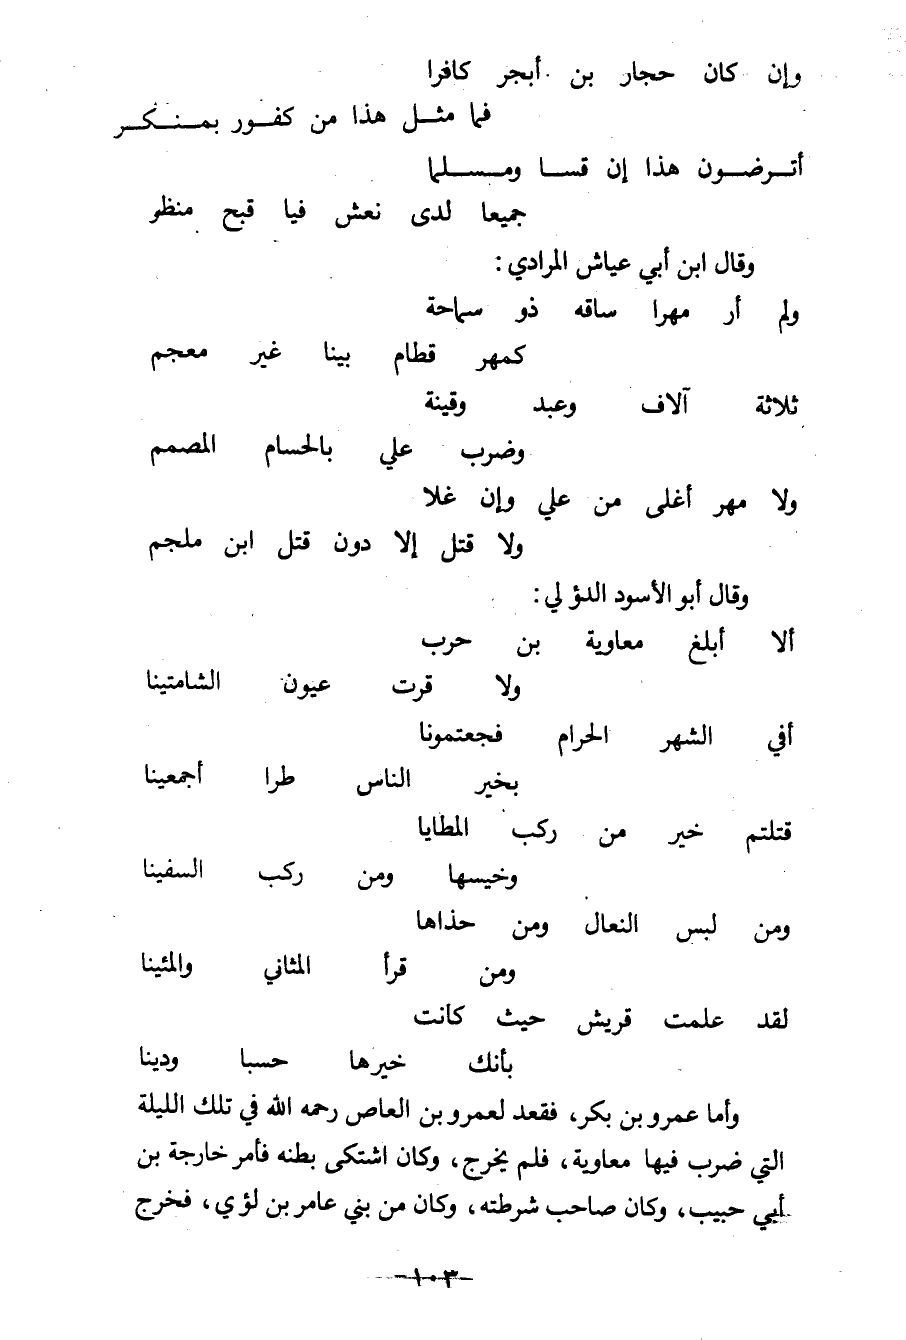 وإن كان حجار بن أبجر كافرا
فما مثل هذا من كفور بمنكر
أترضون هذا إن قسا ومسلما
جميعا لدى نعش فيا قبح منظر
وقال ابن أبي عياش المرادي:
ولم أر مهرا ساقه ذو سماحة
كمهر قطام بينا غير معجم
ثلاثة آلاف وعبد وقينة
وضرب علي بالحسام المصمم
ولا مهر أغلى من علي وإن غلا
ولا قتل إلا دون قتل ابن ملجم
وقال أبو الأسود الدؤلي:
ألا أبلغ معاوية بن حرب
ولا قرت عيون الشامتينا
أفي الشهر الحرام فجعتمونا
بخير الناس طرا أجمعينا
قتلتم خير من ركب المطايا
وخيسها ومن ركب السفينا
ومن لبس النعال ومن حذاها
ومن قرأ المثاني والمئينا
لقد علمت قريش حيث كانت
بأنك خيرها حسبا ودينا
وأما عمرو بن بكر، فقعد لعمرو بن العاص رحمه الله في تلك الليلة
التي ضرب فيها معاوية، فلم يخرج، وكان اشتكى بطنه فأمر خارجة بن
أبي حبيب، وكان صاحب شرطته، وكان من بني عامر بن لؤي، فخرج
-١٠٣-